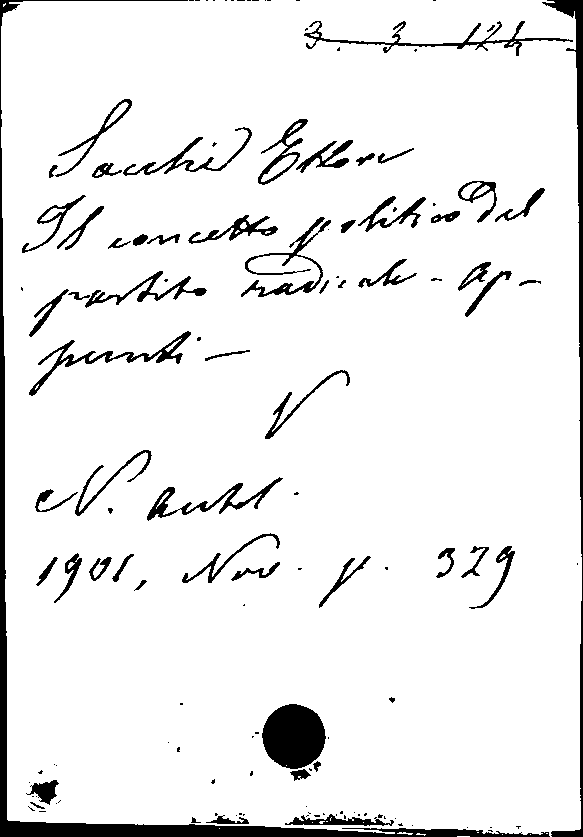 3. 3. 124
Sacchi Ettore
Il concetto politico del
partito radicale - ap-
punti -
V
N. Antol.
1901, Nov. p. 329